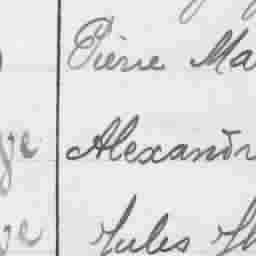 Pierre Ma
ge Alexandr
ge Jules Th